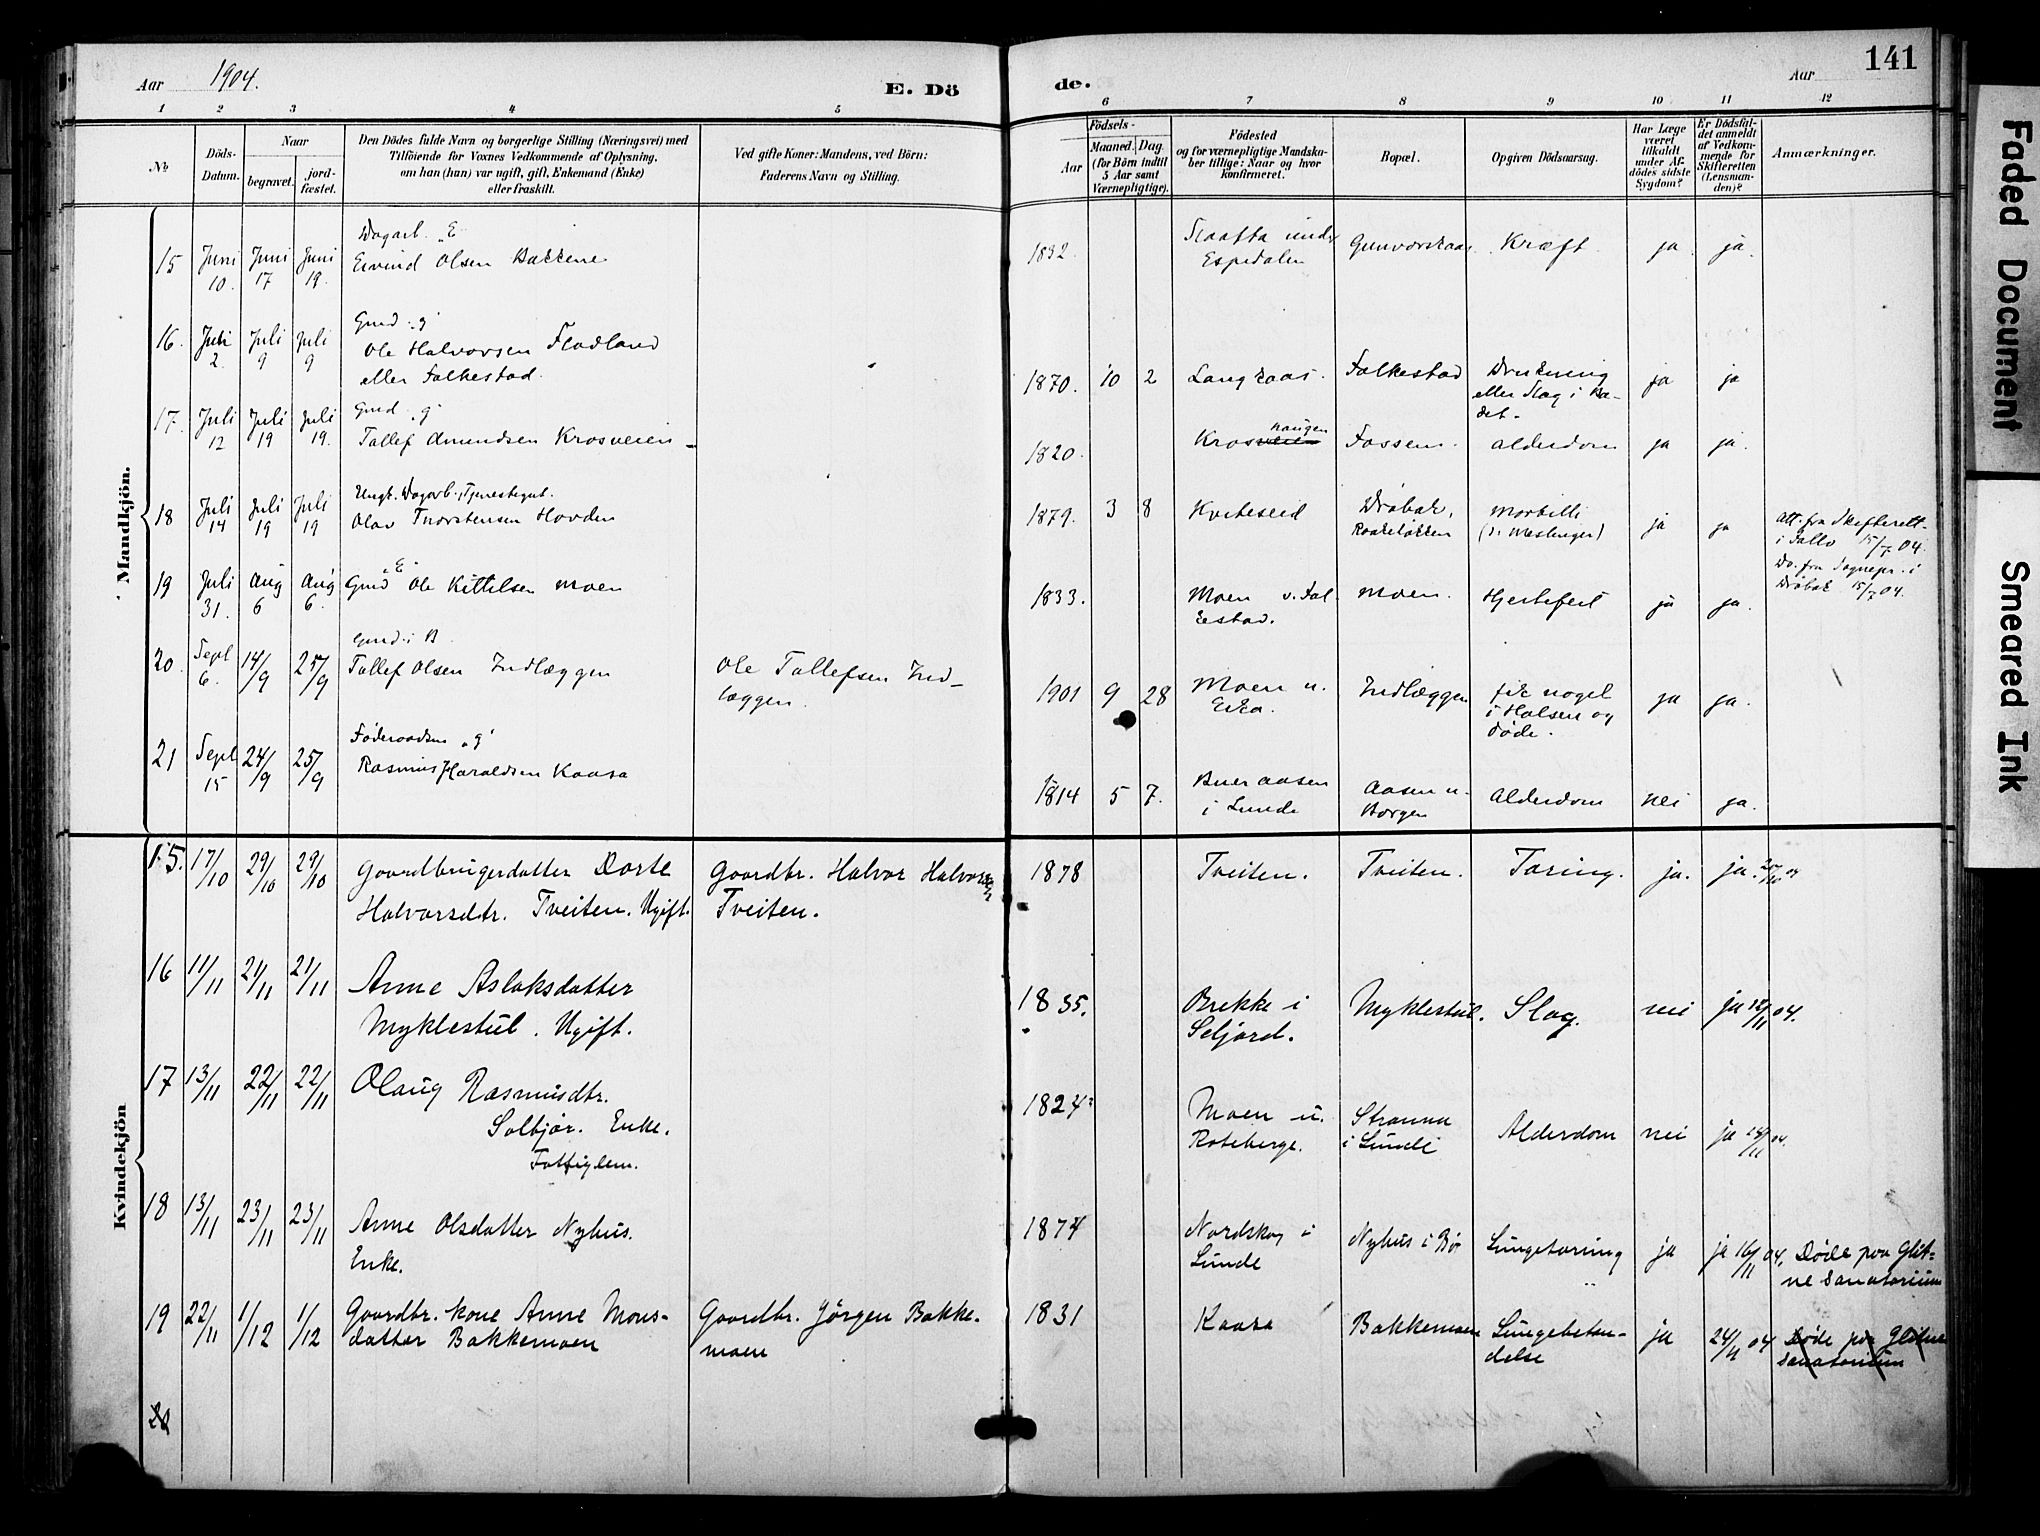 Aar 1904.
E. Dö
de.
Aar
141
1 2 3 4 5 6 7 8 9 10 11 12
No.
Döds-
Datum.
Naar
begravet.
jord-
fæstet.
Den Dödes fulde Navn og borgerlige Stilling (Næringsvei) med
Tilföiende for Voxnes Vedkommende af Oplysning,
om han (hun) var ugift, gift, Enkemand (Enke)
eller fraskilt.
Ved gifte Koner: Mandens, ved Börn:
Faderens Navn og Stilling.
Födsels-
Aar
Maaned. Dag
(for Börn indtil
5 Aar samt
Værnepligtige).
Födested
og for værnepligtige Mandska-
ber tillige: Naar og hvor
konfirmeret.
Bopæl.
Opgiven Dödsaarsag.
Har Læge
været
tilkaldt
under Af-
dödes sidste
Sygdom?
Er Dödsfal-
det anmeldt
af Vedkom-
mende for
Skifteretten
(Lensman-
den)?
Anmærkninger.
Mandkjön.
Dagarb. "E"
15 Juni 10. Juni 17 Juni 19. Eivind Olsen Bakkene 1832. Espedalen Kræft. ja ja.
Gmd. "g"
16. Juli 2. Juli 9 Juli 9 Ole Halvorsen Fladland
eller Folkestad. 1870. 10 2 Langkaas. Folkestad Drukning ja ja
eller Slag i Ba-
det.
Gmd. "g"
17. Juli 12 Juli 19 Juli 19. Tallef Amundsen Krosveien 1820. Krosveien haugen Fossem. Alderdom ja ja.
Ungk. Dagarb., Tjenestegut.
18 Juli 14 Juli 19 Juli 19 Olav Thorstensen Hovden 1879. 3 8 Kviteseid Dröbak, Morbilli ja ja
(ɔ: Meslinger)
Att. fra Skifterett.
i Follo 15/7 04.
Do. fra Sognepr. i
Dröbak 15/7 04.
19 Juli 31. Aug 6 Aug 6. Gmd "E" Ole Kittilsen Moen 1833. Moen u. Fol- Moen. Hjertefeil ja ja.
kestad.
Gmd. i B.
20. Sept 6. 14/9 25/9 Tallef Olsen Indlæggen Ole Tallefsen Ind-
læggen. 1901 9 28 Moen u. Indlæggen fik noget ja ja.
Eika. i Halsen og
döde.
Föderaadsm. "g"
21 Sept 15 24/9 25/9 Rasmus Haraldsen Kaasa 1814 5 7. Bueraasen Aasen u. Alderdom nei ja.
i Lunde Borgen
Kvindekjön
15. 17/10 29/10 29/10 Gaardbrugerdatter Dorte Gaardbr. Halvor Halvorsen 1878 Tveiten. Tveiten. Tæring. ja. ja. 25/10 04
Halvorsdtr. Tveiten. Ugift. Tveiten.
16 11/11 21/11 21/11 Anne Aslaksdatter 1835. Brekke i Myklestul. Slag. nei ja 12/11 04.
Myklestul. Ugift. Seljord.
17 13/11 22/11 22/11 Olaug Rasmusdtr. 1824 Moen u. Stranna Alderdom nei ja 14/11 04.
Solbjör. Enke. Roteberge. i Lunde
Fattiglem.
18 13/11 23/11 23/11 Anne Olsdatter Nyhus. 1874 Nordskog i Nyhus i Bø Lungetæring ja ja 16/11 04. Döde paa Glit-
Enke. Lunde ne Sanatorium
19 22/11 1/12 1/12 Gaardbr. kone Anne Mons- Gaardbr. Jörgen Bakke- 1831 Kaasa Bakkemoen Lungebetæn- ja 24/11 04 Döde paa Glitne
datter Bakkemoen moen delse Sanatorium
Faded Document
Smeared Ink